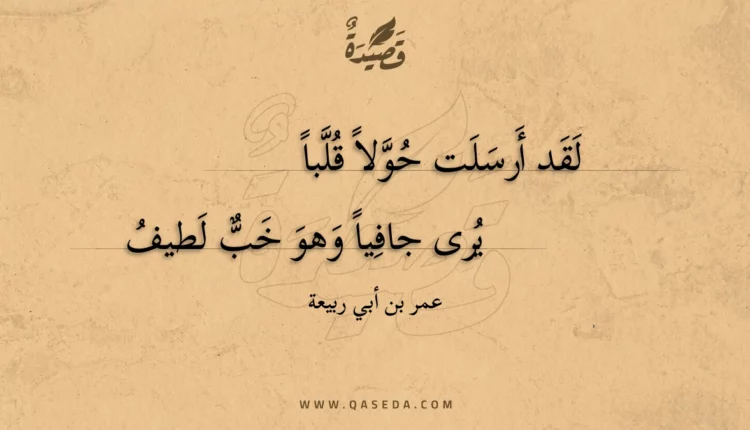 قَصِيْدَةٌ
لَقَد أَرسَلَت حُوَّلاً قُلَّباً
يُرى جافِياً وَهوَ خَبٌّ لَطيفُ
عمر بن أبي ربيعة
WWW.QASEDA.COM